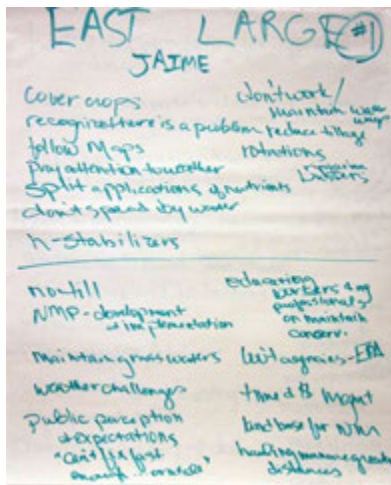 EAST LARGE #1
JAIME
cover crops
recognize there is a problem
follow Maps
Pray attention to weather
split applications of nutrients
don't spread by water
n-stabilizers
don't work/
maintain
reduce tillage
rotations
Buffers
no till
NMP - development
+ implementation
maintain grass waters
weather challenges
public perception
+ expectations
"can't fix fast
enough
education
workers & ag
professionals
on maintain
conserv.
agencies - EPA
time & $ Mgmt
land base for NM
hauling manure greater
distances